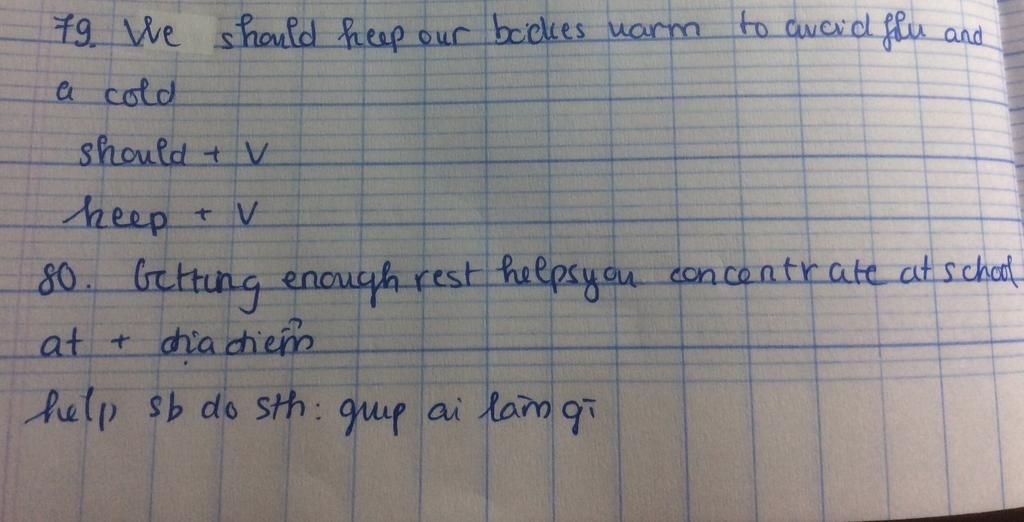 79. We should keep our bodies warm to avoid flu and
a cold
should + V
keep + V
80. Getting enough rest helps you concentrate at school
at + địa điểm
help sb do sth: giúp ai làm gì